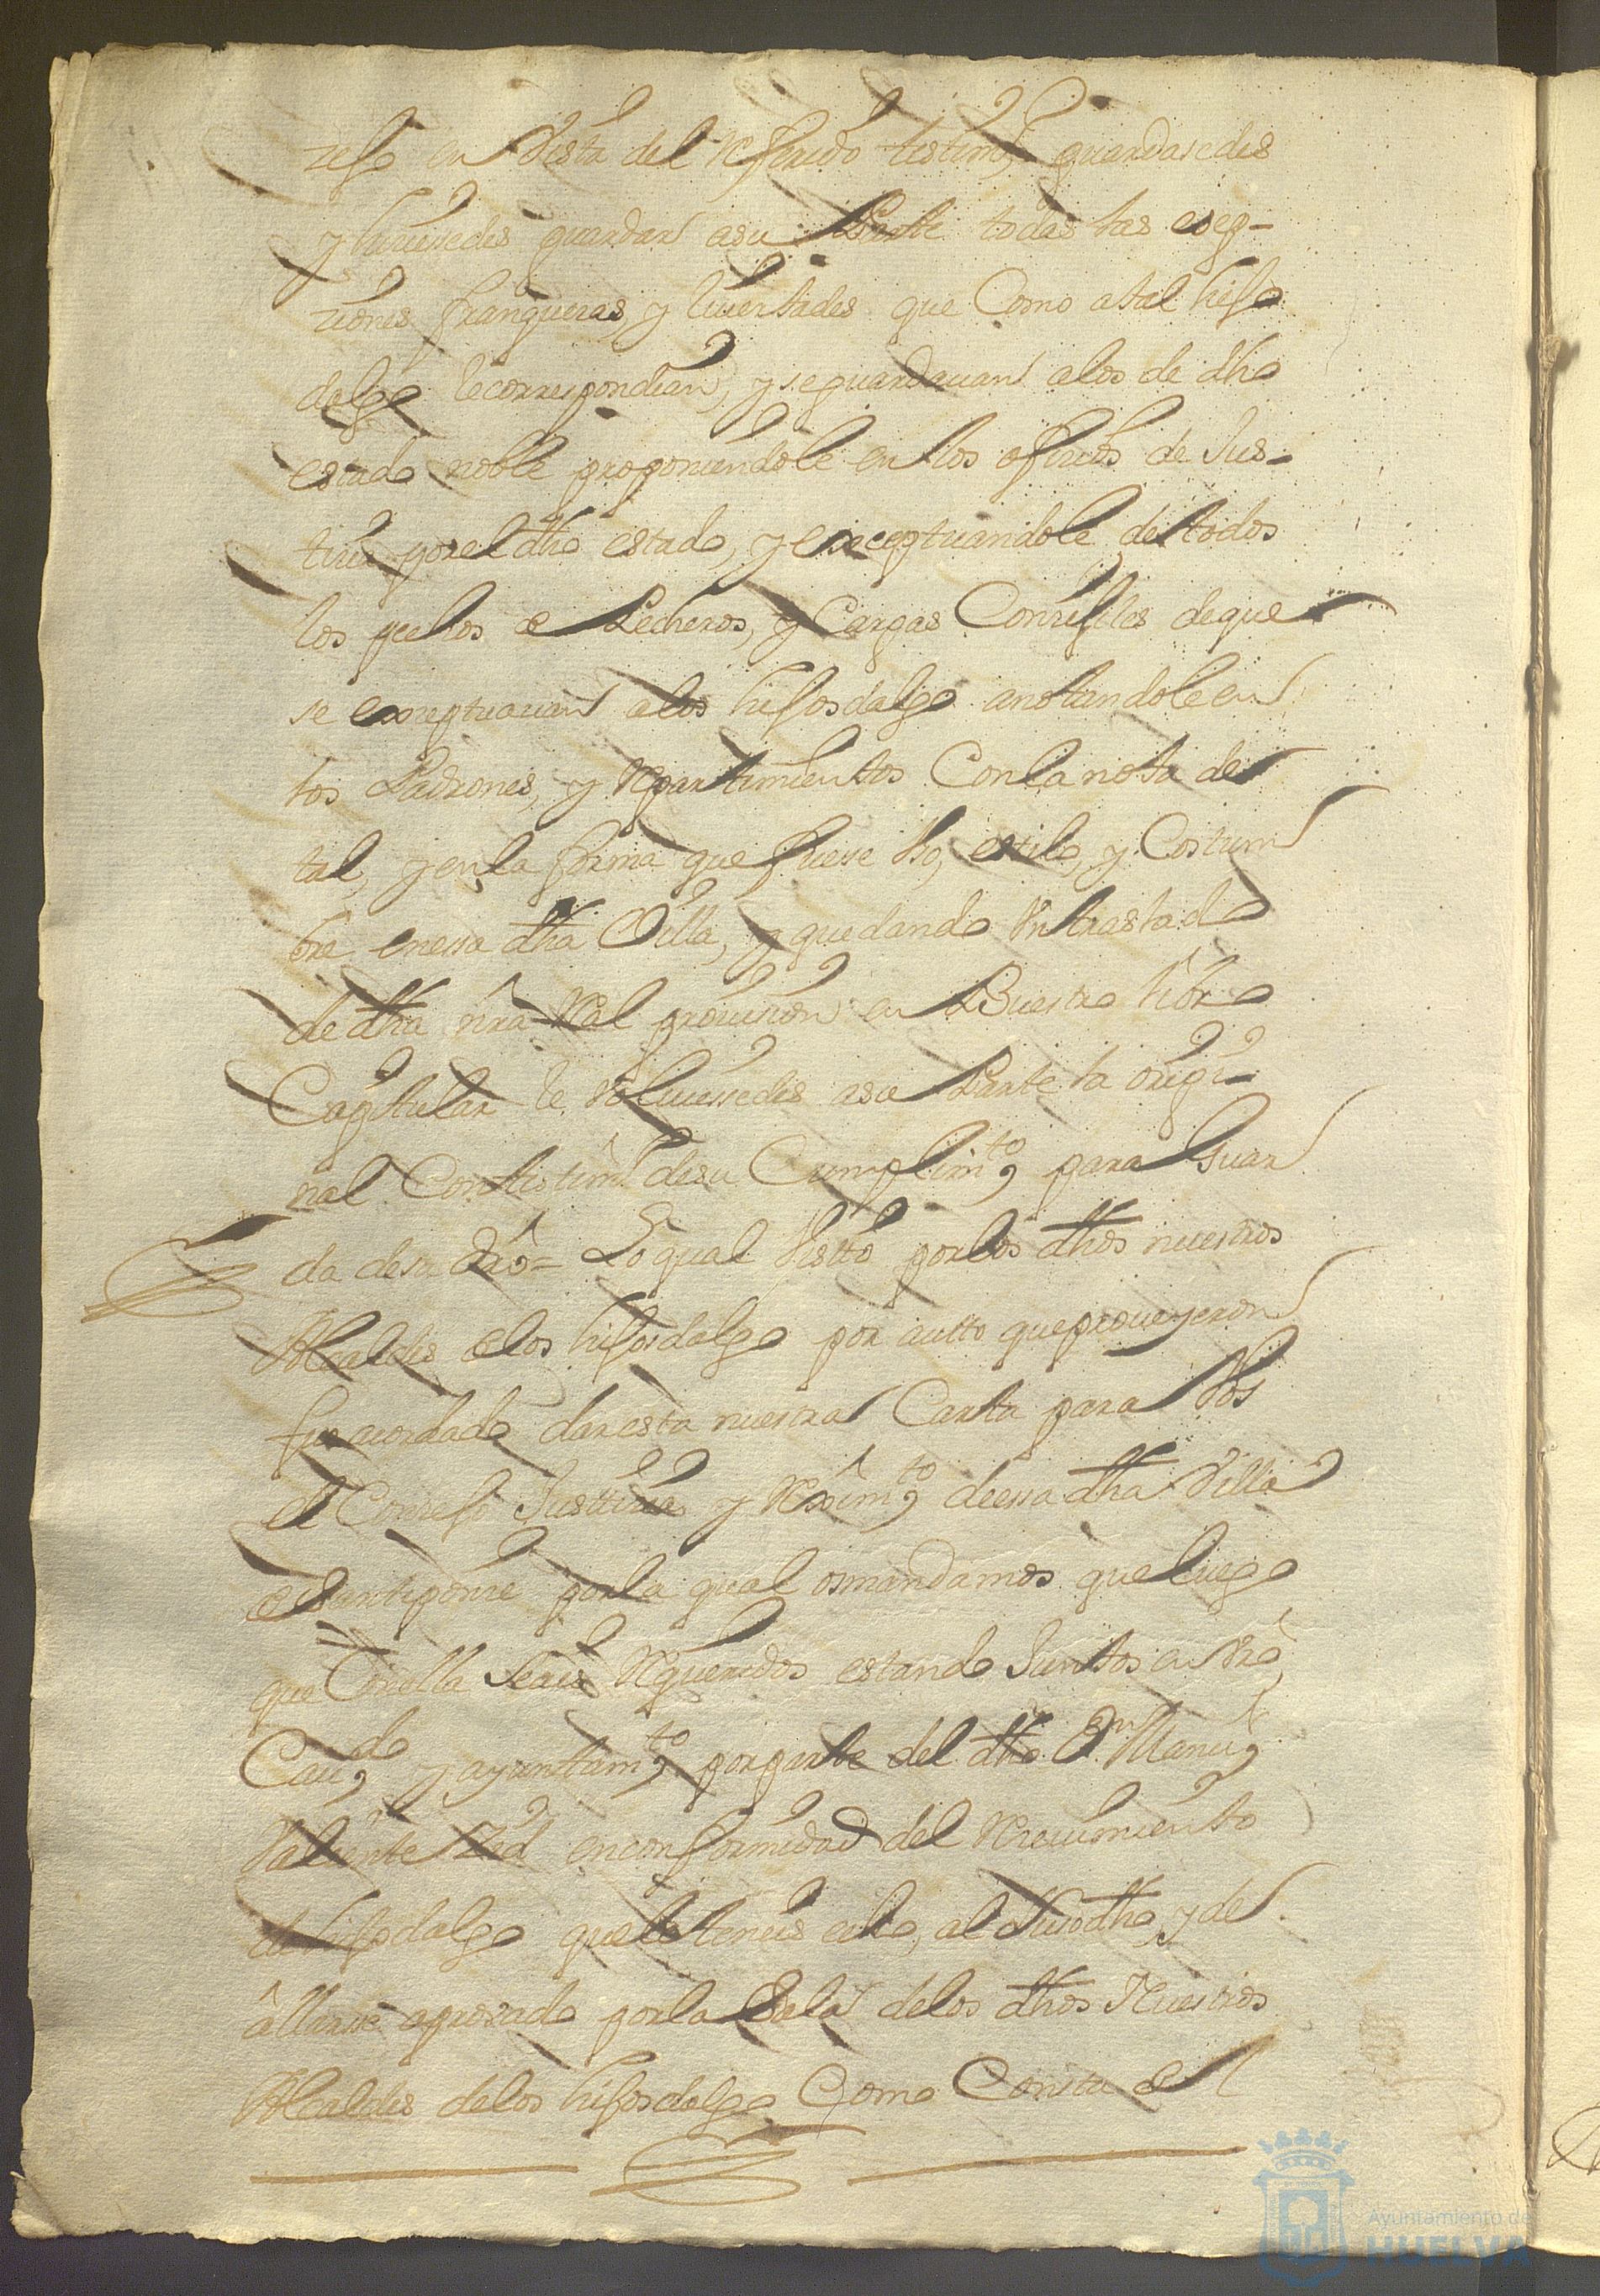 zejo en Vista del referido testimo, guardasedes
y hiciesedes guardar asu Parte todas las esep-
ziones, franquezas, y livertades que Como atal hijo
dalgo lecorrespondian, y seguardavan alos de dho
estado noble proponiendole en los oficios de Jus-
ticia por el dho estado, y exceptuandole de todos
los pechos de Pecheros, y Cargas Conzejiles deque
se exceptuavan alos hijosdalgo anotandole en
los Padrones, y repartimientos Con la nota de
tal, y en la forma que fuese Vso, estilo, y Costum
bre enessa dha Villa, y quedando Vn traslado
de dha nra Real provision en Vuestro libro
Capitular le volviessedes asu Parte la origi-
nal Con testimo desu Cumplimto, para Guar
da desu dro = Lo qual Visto por los dhos nuestros
Alcaldes delos hijosdalgo por autto que proveyeron
fue acordado dar esta nuestra Carta para Vos
el Conzejo Justticia y Reximto, de essa dha Villa
por la qual os mandamos que luego
que Conella seais requeridos estando Juntos en Vro
Cavdo, y ayuntamto, por parte del dho Dn Manuel
Valiente en conformidad del recivimiento
de hijodalgo que le teneis echo, al Susodho, y de
allarse aprovado por la Sala delos dhos Nuestros
Alcaldes delos hijosdalgo Como Consta del
Ayuntamiento de
HUELVA